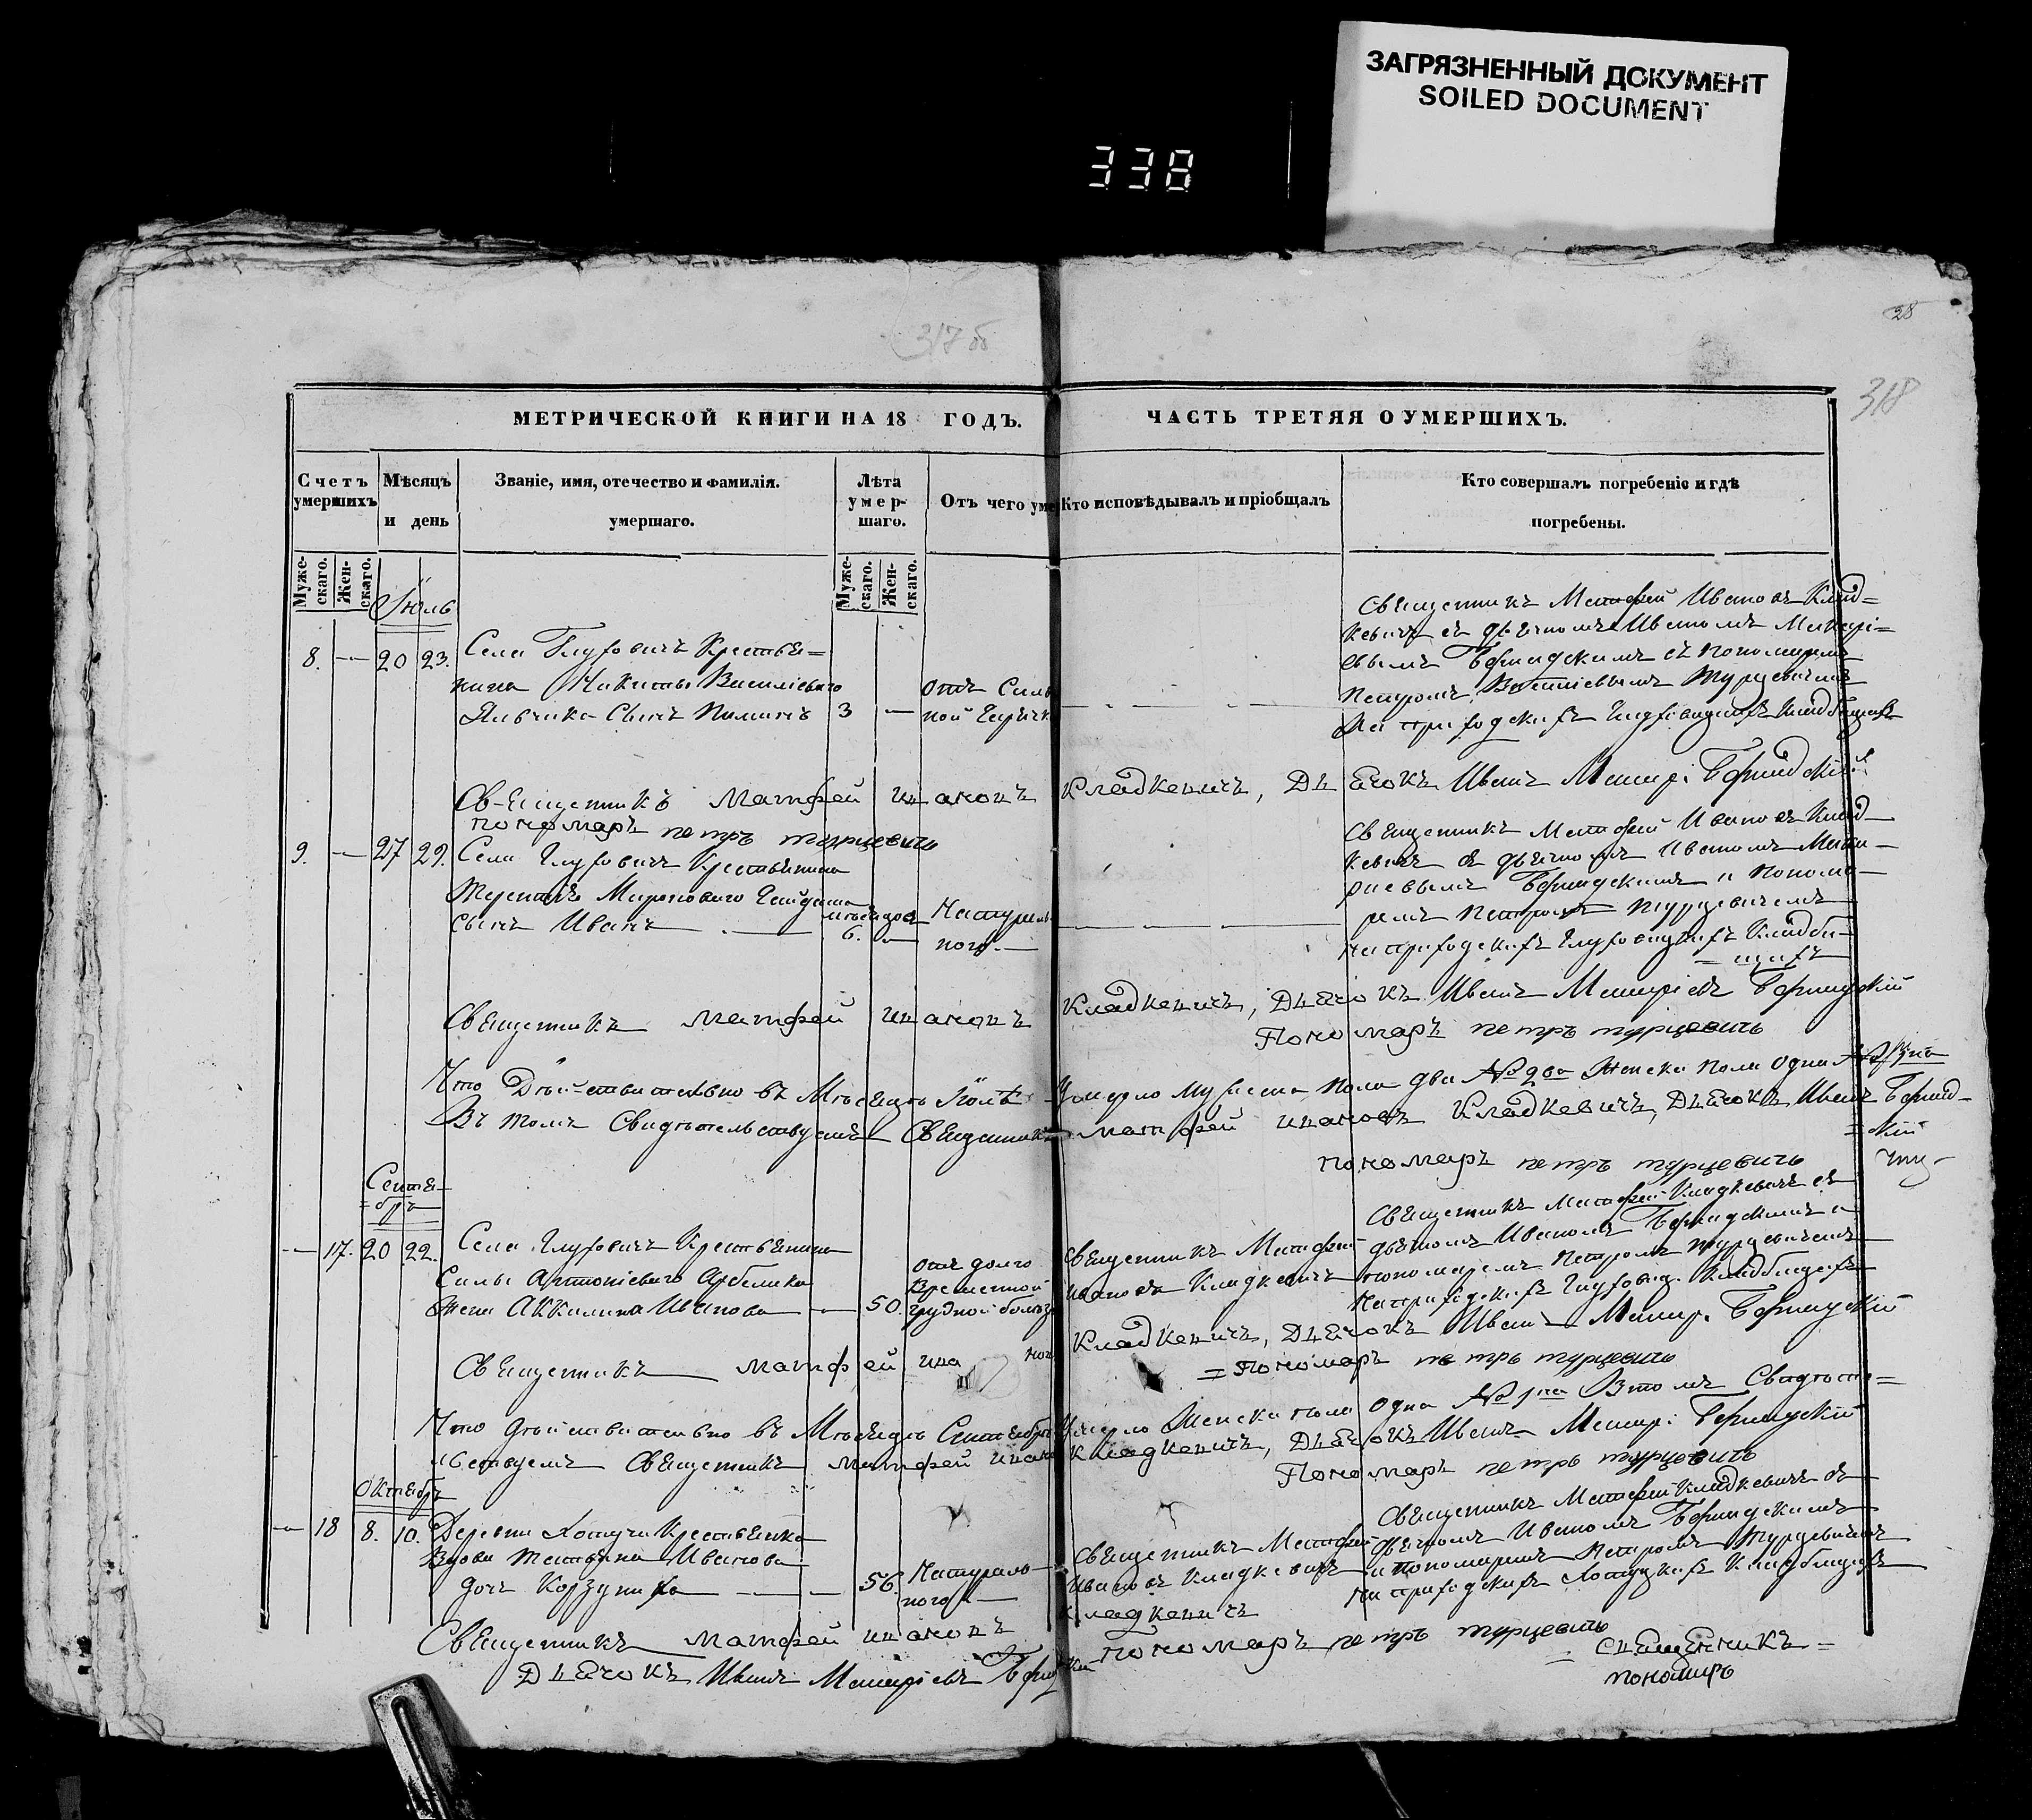 ЗАГРЯЗНЕННЫЙ ДОКУМЕНТ
SOILED DOCUMENT
338
28
317 об
318
МЕТРИЧЕСКОЙ КНИГИ НА 18 ГОДЪ.
ЧАСТЬ ТРЕТЯЯ О УМЕРШИХЪ.
Счетъ умершихъ
Мужескаго.
Женскаго.
Мѣсяцъ и день
Званіе, имя, отечество и фамилія. умершаго.
Лѣта умершаго.
Мужескаго.
Женскаго.
Отъ чего уме
Кто исповѣдывалъ и пріобщалъ
Кто совершалъ погребеніе и гдѣ погребены.
Іюль
8. — 20 23.
Села Глуховичъ Крестьян=
нина Никиты Василіевого
сынъ 3 —
отъ Силь
ной
Священникъ Матфей Ивановъ Клад=
кевичъ съ дьячкомъ Иваномъ Макарі=
евымъ съ пономаремъ
Петромъ Василіевымъ Турцевичемъ
На приходскихъ Глуховицкихъ Кладбищахъ
Священникъ Матфей Ивановъ Кладкевичъ, Дьячокъ Иванъ Макарі
пономаръ петръ турцевичъ
9. — 27 29.
Села Глуховичъ Крестьянина
Миронового
сынъ Иванъ —
6. —
Натураль
ного —
Священникъ Матфей Ивановъ Клад
кевичъ съ дьячкомъ Иваномъ Мака—
риевымъ и Понома—
ремъ Петромъ Турцевичемъ
на приходскихъ Глуховицкихъ Кладби—
= щахъ
Священникъ Матфей Ивановъ Кладкевичъ, Дьячокъ Иванъ Макаріевъ
Пономаръ петръ турцевичъ
Что Дѣйствительно въ Мѣсяцѣ Іюлѣ Умерло Мужеска пола два № два Женска пола одна №
Въ томъ Свидѣтельствуемъ Священникъ матфей ивановъ Кладкевичъ, Дьячокъ Иванъ
пономаръ петръ турцевичъ
Сентя—
=бръ
— 17. 20 22.
Села Глуховичъ Крестьянина
Силы Антоніевого
Жена Аккилина Иванова — 50.
отъ долго
временной
грудной болѣз
Священникъ Матфей
Ивановъ Кладкевичъ
Священникъ Матфей Кладкевичъ съ
дьячкомъ Иваномъ и
пономаремъ Петромъ Турцевичемъ
На приходскихъ Глуховиц. Кладбищахъ
Священникъ матфей ива нов Кладкевичъ, Дьячокъ Иванъ Макар.
=Пономаръ петръ турцевичъ
Что дѣйствительно въ Мѣсяцѣ Сентябрѣ Умерло Женска пола одна № 1на В томъ Свидѣте=
льствуемъ Священникъ матфей Кладкевичъ, Дьячокъ Иванъ Макарі
Пономаръ петръ турцевичъ
Октябръ
— 18 8. 10.
Деревни Хотучи Крестьянка
Вдова Татьяна Иванова
дочъ — 56.
Натураль—
ного —
Священникъ Матфей
Ивановъ Кладкевичъ
Священникъ Матфей Кладкевичъ съ
дьячкомъ Иваномъ
и пономаремъ Петромъ Турцевичемъ
на приходскихъ Кладбищахъ
Священникъ матфей ивановъ Кладкевичъ
Дьячокъ Иванъ Макаріевъ
пономаръ петръ турцевичъ
Священникъ=
пономаръ